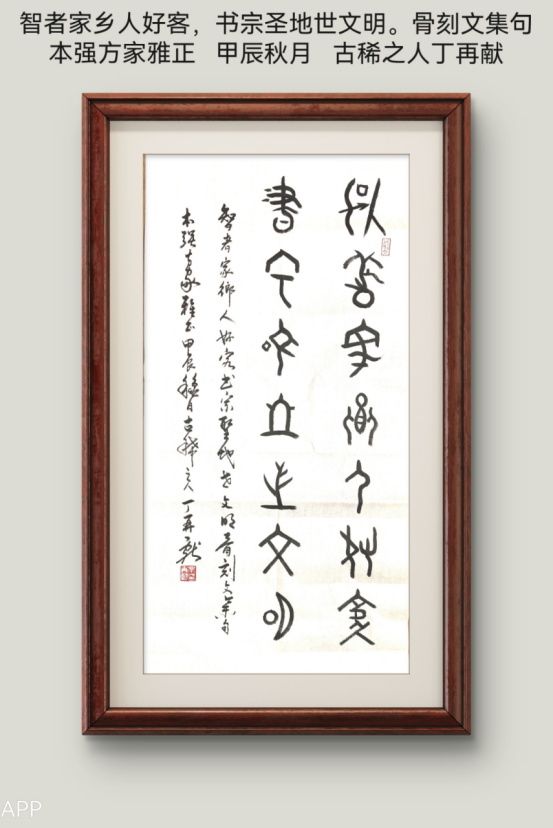 智者家乡人好客，书宗圣地世文明。骨刻文集句
本强方家雅正 甲辰秋月 古稀之人丁再献
智者家鄉人好客
書宗聖地世文明
智者家鄉人好客书宗聖地世文明骨刻文集句
本强方家雅正甲辰秋月古稀之人丁再献
APP